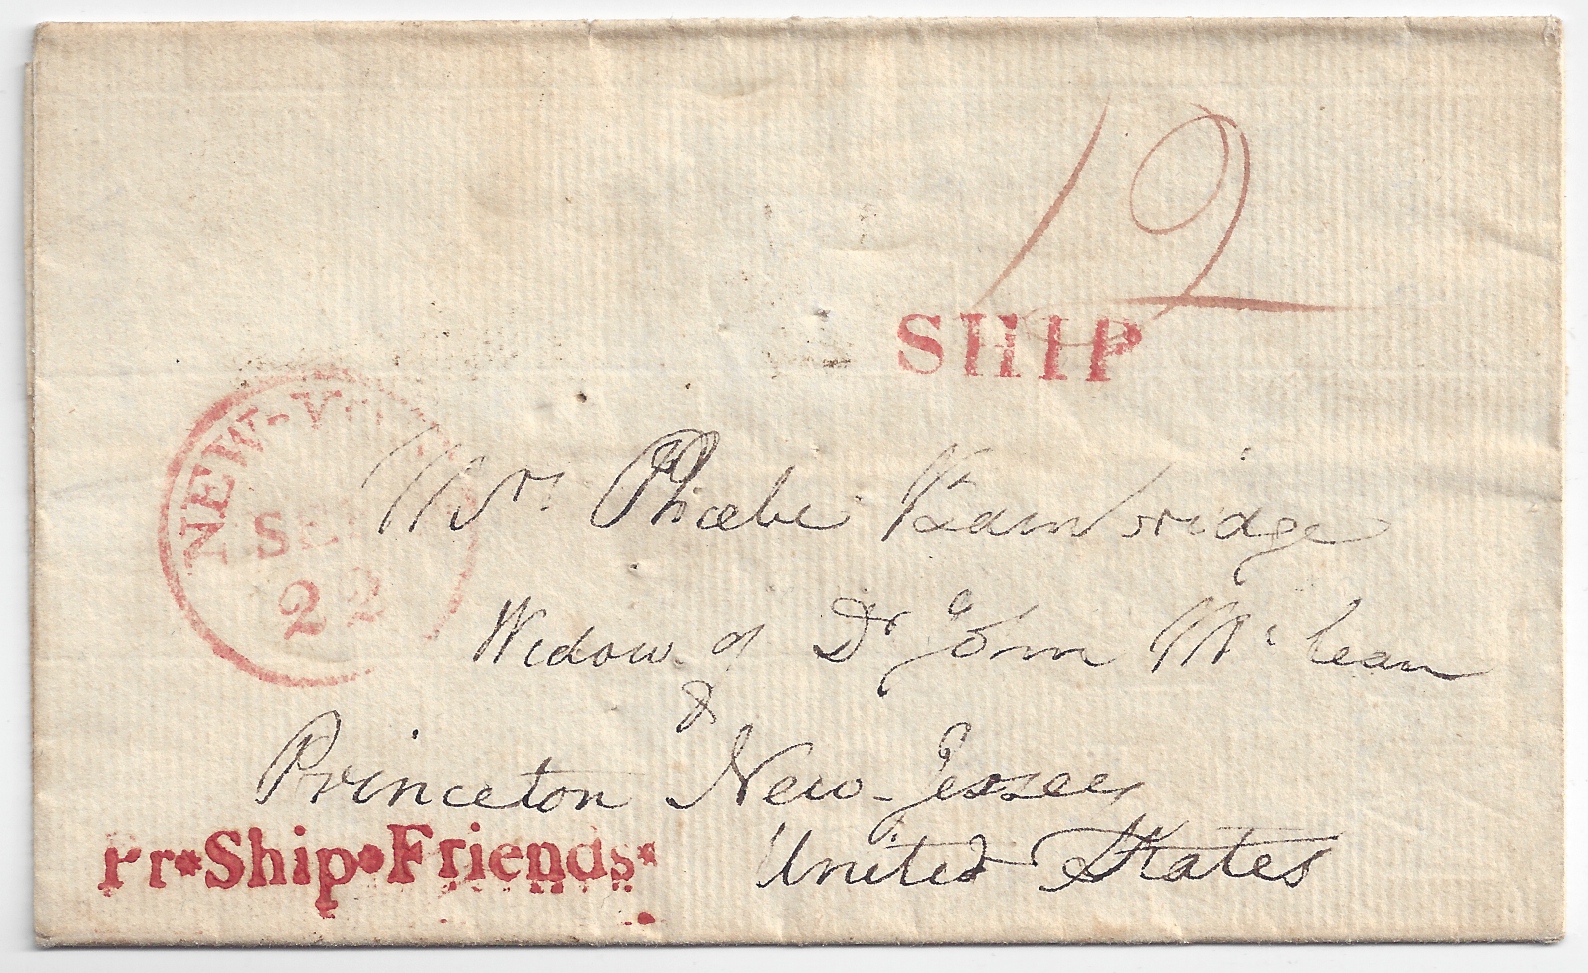 12
SHIP
NEW-YORK
SEP
22
Mrs Phœbe Bambridge
Widow of Dr John McClean
Princeton New-Jersee,
United States
Pr*Ship•Friends*